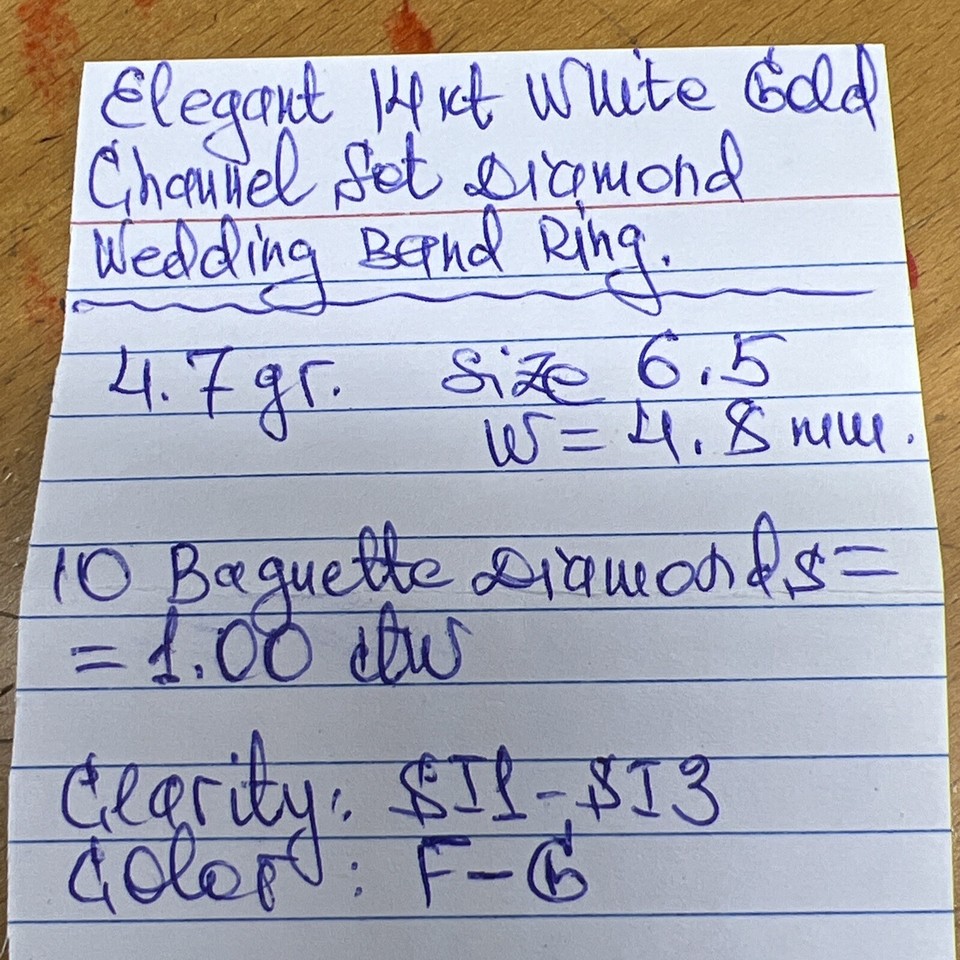 Elegant 14kt White Gold
Channel Set Diamond
Wedding Band Ring.
4.7gr. Size 6.5
W = 4.8 mm.
10 Baguette Diamonds =
= 1.00 ctw
Clarity: SI1 - SI3
Color : F - G